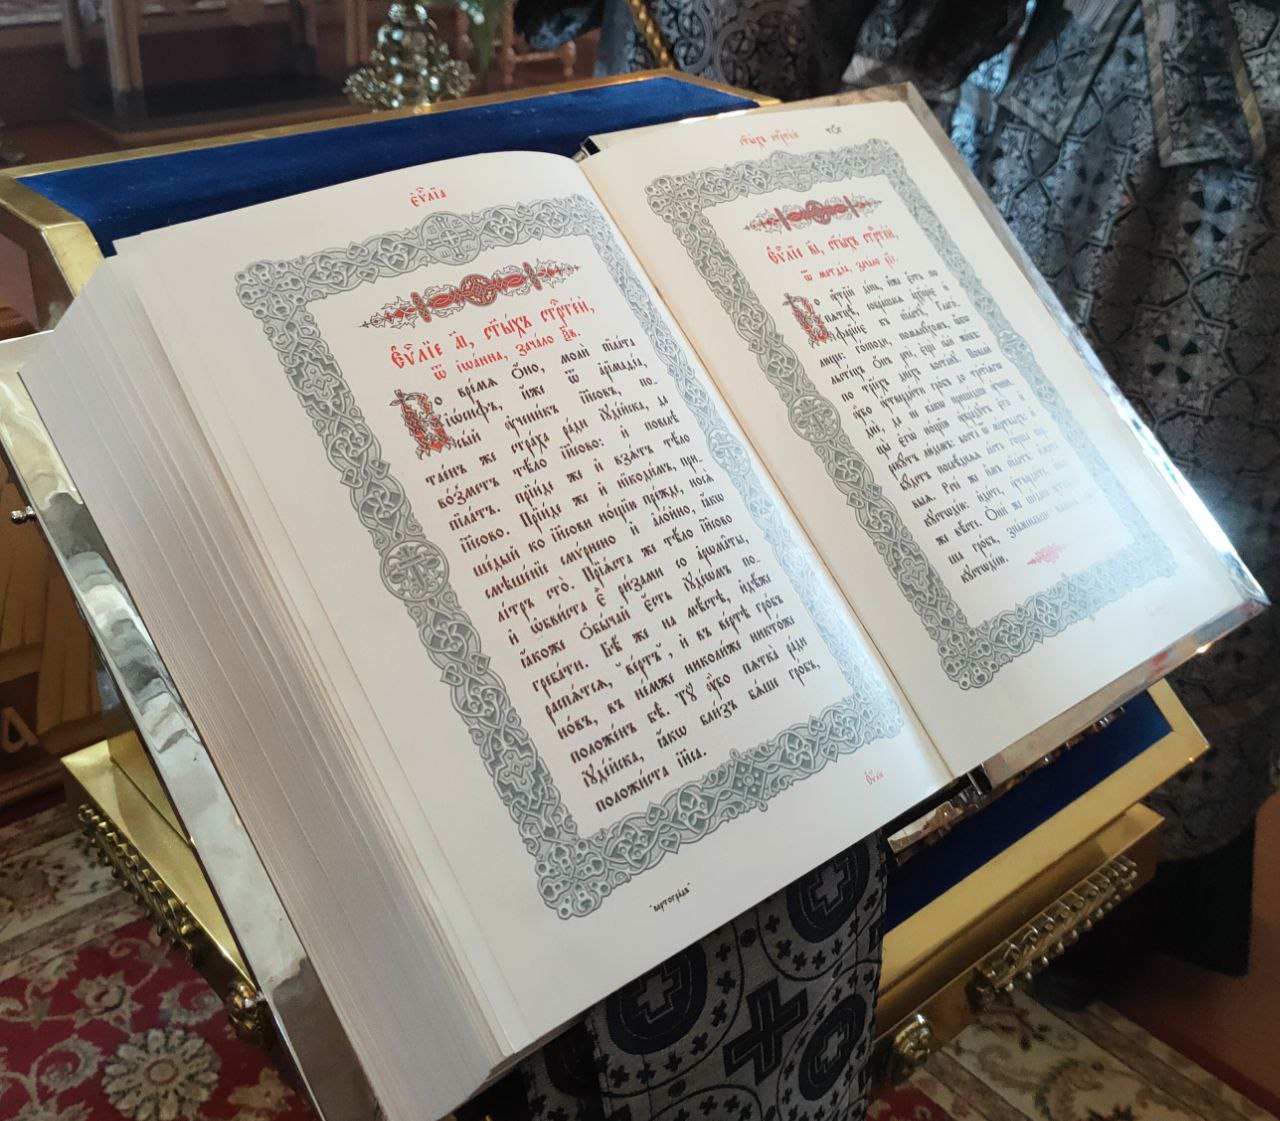 Е҆ѵⷢ҇лїа
Е҆ѵⷢ҇лїе а҃і, ст҃ы́хъ стрⷭ҇те́й,
ѿ і҆ѡа́нна, зача́ло
Во вре́мѧ ѻ҆́но, молѝ пїла́та
і҆ѡ́сифъ, и҆́же ѿ а҆рїмаѳе́а,
сы́й ᲂу҆чени́къ і҆и҃совъ, по-
тае́нъ же стра́ха ра́ди і҆ꙋде́йска, да
во́зметъ тѣ́ло і҆и҃сово: и҆ повелѣ̀
пїла́тъ. Прїи́де же и҆ взѧ́тъ тѣ́ло
і҆и҃сово. Прїи́де же и҆ нїкоди́мъ, при-
ше́дый ко і҆и҃сови но́щїю пре́жде, носѧ̀
смѣше́нїе смѵ́рнено и҆ а҆ло́йно, ꙗ҆́кѡ
лі́тръ сто̀. Прїѧ́ста же тѣ́ло і҆и҃сово
и҆ ѡ҆бви́ста є҆̀ ри́зами со а҆рѡма̑ты,
ꙗ҆́коже ѻ҆бы́чай є҆́сть і҆ꙋде́ѡмъ по-
греба́ти. Бѣ́ же на мѣ́стѣ, и҆дѣ́же
распѧ́тсѧ, ве́ртъ, и҆ въ ве́ртѣ гро́бъ
но́въ, въ не́мже николи́же никто́же
положе́нъ бѣ̀. Тꙋ̀ ᲂу҆̀бо пѧтка̀ ра́ди
і҆ꙋде́йска, ꙗ҆́кѡ бли́з бѧ́ше гро́бъ,
положи́ста і҆и҃са.
ст҃ы́хъ стрⷭ҇те́й
Е҆ѵⷢ҇лїе в҃і, ст҃ы́хъ стрⷭ҇те́й,
ѿ матѳе́а, зача́ло
Во ᲂу҆́трїй де́нь, и҆́же є҆́сть по
пѧтцѣ̀, собра́шасѧ а҆рхїере́є и҆
фарїсе́є къ пїла́тꙋ, глаго́-
люще: го́споди, помѧнꙋ́хомъ, ꙗ҆́кѡ
льсте́цъ ѻ҆́нъ речѐ, є҆щѐ сы́й жи́въ:
по трїе́хъ дне́хъ воста́нꙋ. Повелѝ
ᲂу҆̀бо ᲂу҆тверди́ти гро́бъ до тре́тїѧгѡ
днѐ: да не ка́кѡ прише́дше ᲂу҆чени-
цы̀ є҆гѡ̀ но́щїю ᲂу҆кра́дꙋтъ є҆го̀ и҆
рекꙋ́тъ лю́демъ: воста̀ ѿ ме́ртвыхъ: и҆
бꙋ́детъ послѣ́днѧѧ ле́сть го́рша
Рече́ же и҆̀мъ пїла́тъ: и҆́мате
кꙋстѡді́ю: и҆ди́те, ᲂу҆тверди́те,
же вѣ́сте. Ѻ҆ни́ же ше́дше
ша гро́бъ, зна́менавше
кꙋстѡді́ею.